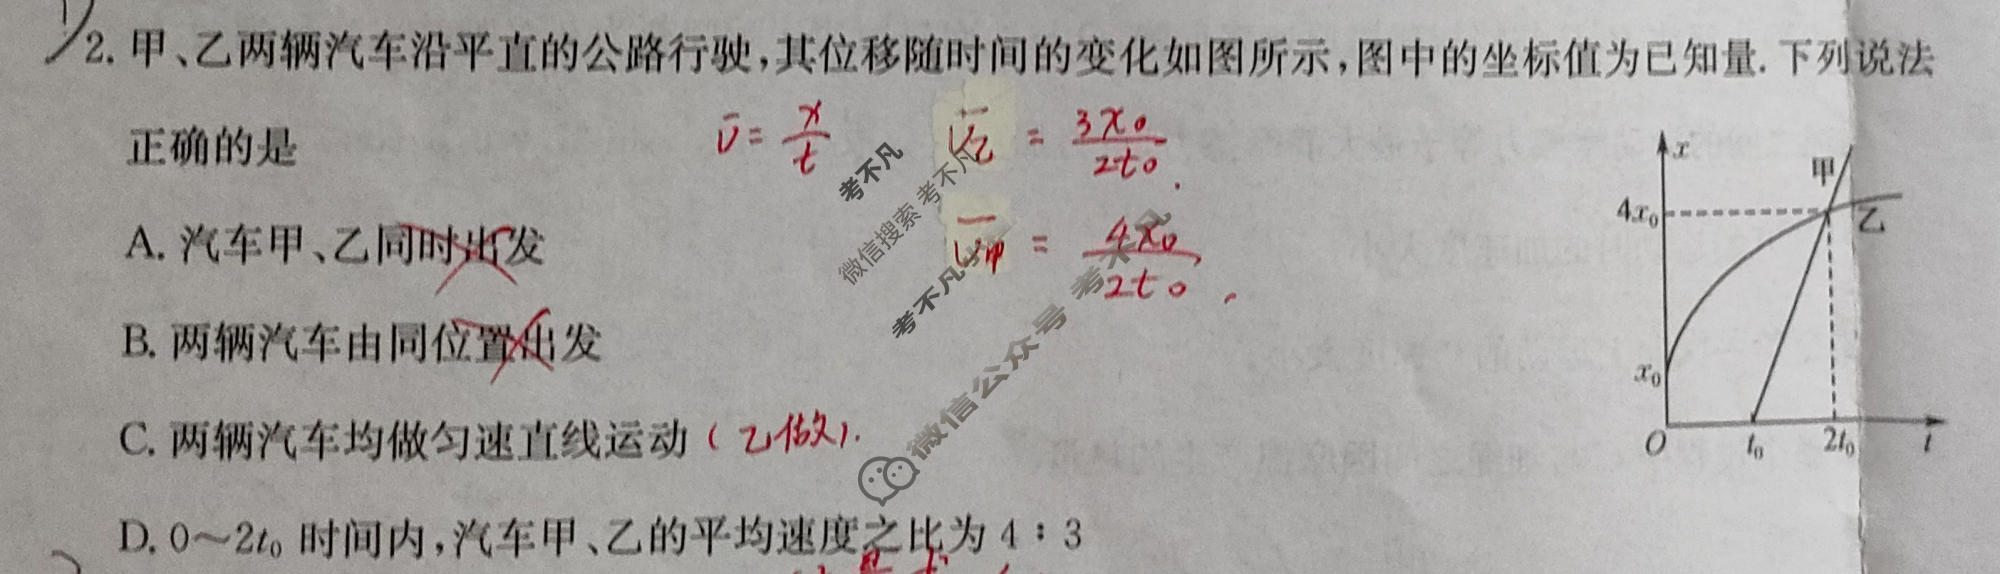 2. 甲、乙两辆汽车沿平直的公路行驶,其位移随时间的变化如图所示,图中的坐标值为已知量.下列说法
正确的是
v̄ = x/t
v̄乙 = 3x₀/2t₀.
v̄甲 = 4x₀/2t₀,
A. 汽车甲、乙同时出发
B. 两辆汽车由同位置出发
C. 两辆汽车均做匀速直线运动(乙做).
D. 0～2t₀ 时间内,汽车甲、乙的平均速度之比为 4∶3
x
甲
4x₀
乙
x₀
O
t₀
2t₀
t
考不凡
微信搜索 考不凡
考不凡
微信公众号 考不凡